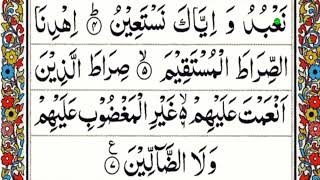 نَعْبُدُ وَ اِيَّاكَ نَسْتَعِيْنُ ﴿۴﴾ اِهْدِنَا
الصِّرَاطَ الْمُسْتَقِيْمَ ۙ﴿۵﴾ صِرَاطَ الَّذِيْنَ
اَنْعَمْتَ عَلَيْهِمْ ۙ۬ غَيْرِ الْمَغْضُوْبِ عَلَيْهِمْ
وَلَا الضَّآلِّيْنَ ﴿۷﴾ ع